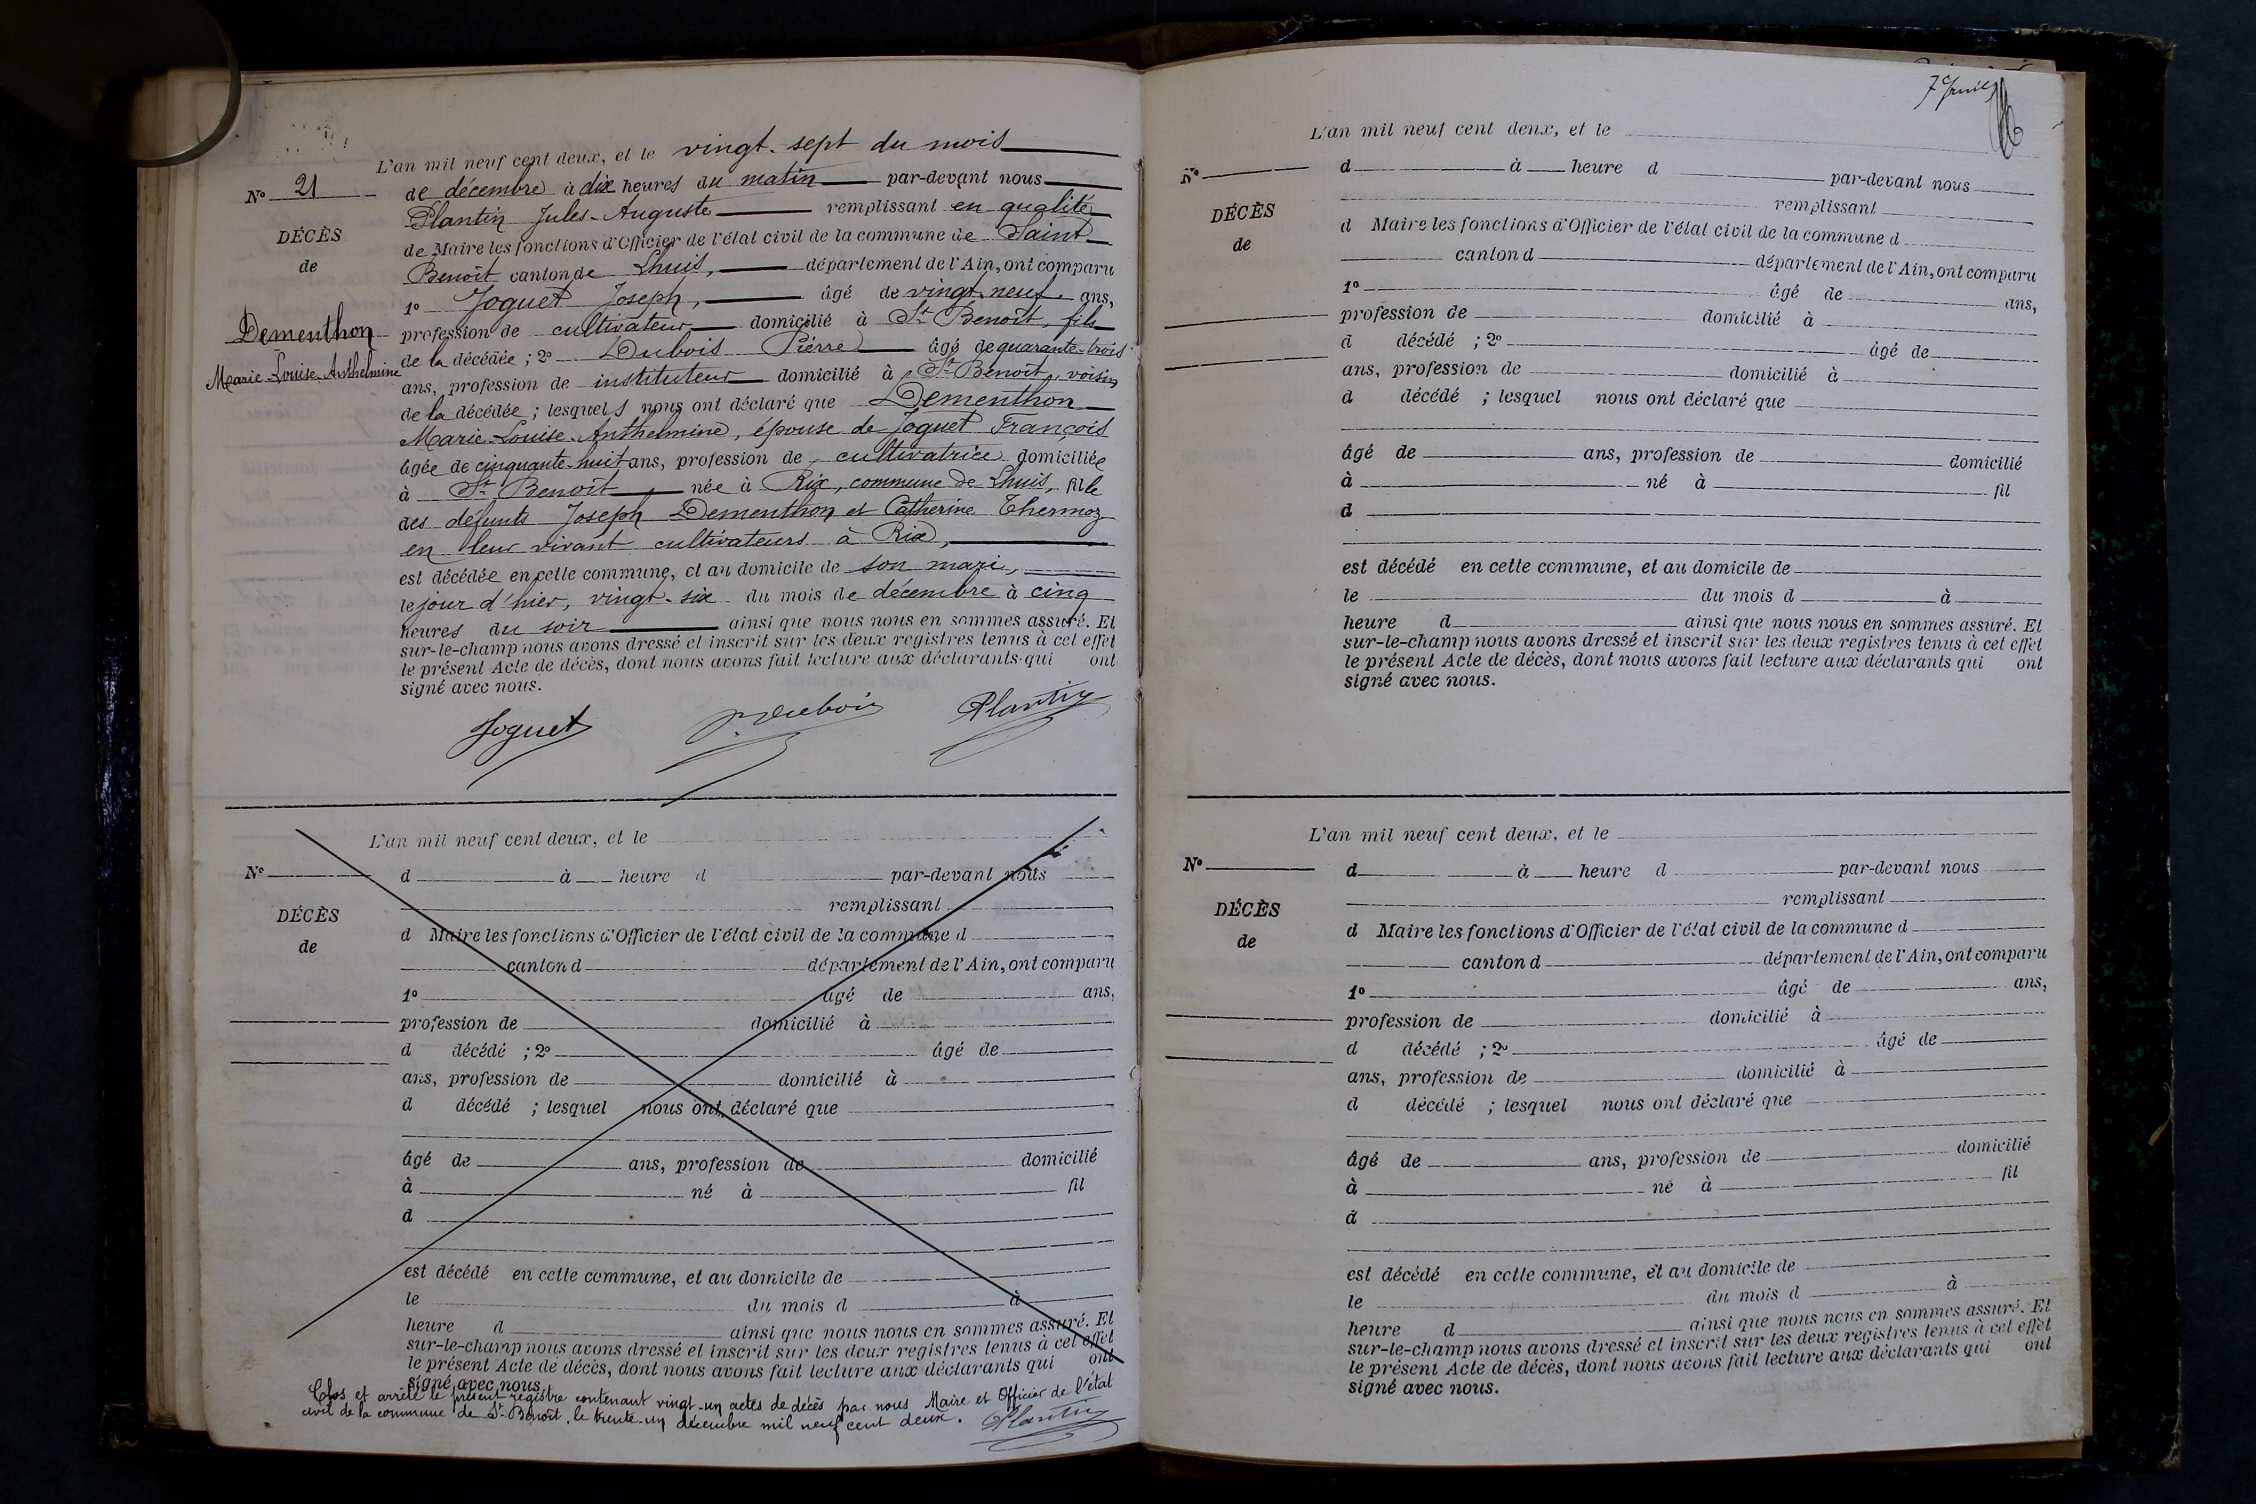 L'an mil neuf cent deux, et le vingt-sept du mois
N° 21
de décembre à dix heures du matin par-devant nous
Plantin Jules-Auguste remplissant en qualité
DÉCÈS
de Maire les fonctions d'Officier de l'état civil de la commune de Saint-
de
Benoît canton de Lhuis, département de l'Ain, ont comparu
1° Joguet Joseph, âgé de vingt-neuf ans,
Dementhon
profession de cultivateur domicilié à St Benoît, fils
Marie-Louise-Anthelmine
de la décédée ; 2° Dubois Pierre âgé de quarante-trois
ans, profession de instituteur domicilié à St Benoît, voisin
de la décédée ; lesquels nous ont déclaré que Dementhon
Marie-Louise-Anthelmine, épouse de Joguet François
âgée de cinquante-huit ans, profession de cultivatrice domiciliée
à St Benoît née à Rix, commune de Lhuis, fille
des défunts Joseph Dementhon et Catherine Thermoz
en leur vivant cultivateurs à Rix,
est décédée en cette commune, et au domicile de son mari,
le jour d'hier, vingt-six du mois de décembre à cinq
heures du soir ainsi que nous nous en sommes assuré. Et
sur-le-champ nous avons dressé et inscrit sur les deux registres tenus à cet effet
le présent Acte de décès, dont nous avons fait lecture aux déclarants qui ont
signé avec nous.
Joguet P. Dubois Plantin
L'an mil neuf cent deux, et le
N°
d à heure d par-devant nous
remplissant
DÉCÈS
d Maire les fonctions d'Officier de l'état civil de la commune d
de
canton d département de l'Ain, ont comparu
1° âgé de ans,
profession de domicilié à
d décédé ; 2° âgé de
ans, profession de domicilié à
d décédé ; lesquel nous ont déclaré que
âgé de ans, profession de domicilié
à né à fil
d
est décédé en cette commune, et au domicile de
le du mois d à
heure d ainsi que nous nous en sommes assuré. Et
sur-le-champ nous avons dressé et inscrit sur les deux registres tenus à cet effet
le présent Acte de décès, dont nous avons fait lecture aux déclarants qui ont
signé avec nous.
Clos et arrêté le présent registre contenant vingt-un actes de décès par nous Maire et Officier de l'état
civil de la commune de St Benoît, le trente-un décembre mil neuf cent deux. Plantin
L'an mil neuf cent deux, et le
N°
d à heure d par-devant nous
remplissant
DÉCÈS
d Maire les fonctions d'Officier de l'état civil de la commune d
de
canton d département de l'Ain, ont comparu
1° âgé de ans,
profession de domicilié à
d décédé ; 2° âgé de
ans, profession de domicilié à
d décédé ; lesquel nous ont déclaré que
âgé de ans, profession de domicilié
à né à fil
d
est décédé en cette commune, et au domicile de
le du mois d à
heure d ainsi que nous nous en sommes assuré. Et
sur-le-champ nous avons dressé et inscrit sur les deux registres tenus à cet effet
le présent Acte de décès, dont nous avons fait lecture aux déclarants qui ont
signé avec nous.
L'an mil neuf cent deux, et le
N°
d à heure d par-devant nous
remplissant
DÉCÈS
d Maire les fonctions d'Officier de l'état civil de la commune d
de
canton d département de l'Ain, ont comparu
1° âgé de ans,
profession de domicilié à
d décédé ; 2° âgé de
ans, profession de domicilié à
d décédé ; lesquel nous ont déclaré que
âgé de ans, profession de domicilié
à né à fil
d
est décédé en cette commune, et au domicile de
le du mois d à
heure d ainsi que nous nous en sommes assuré. Et
sur-le-champ nous avons dressé et inscrit sur les deux registres tenus à cet effet
le présent Acte de décès, dont nous avons fait lecture aux déclarants qui ont
signé avec nous.